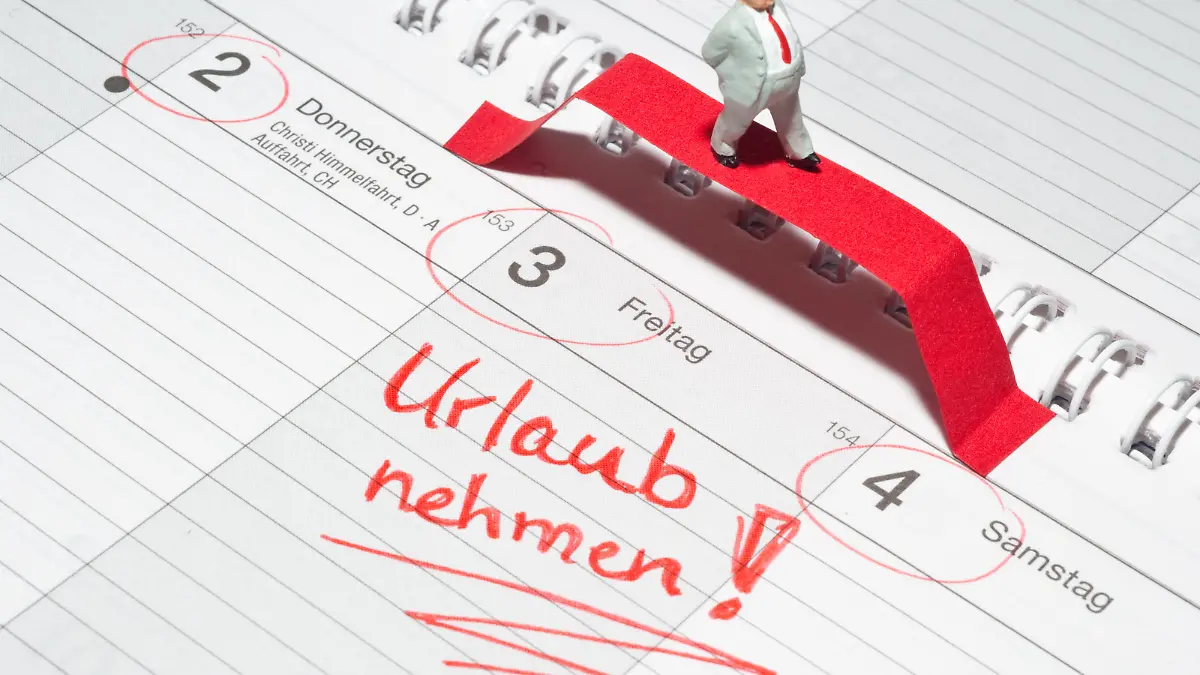 152
2
Donnerstag
Christi Himmelfahrt, D · A
Auffahrt, CH
153
3
Freitag
Urlaub
nehmen!
154
4
Samstag